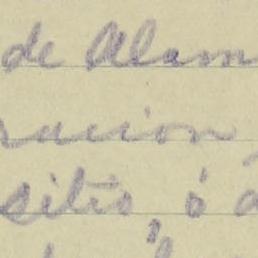 de Alam
racion,
sitio, ó a